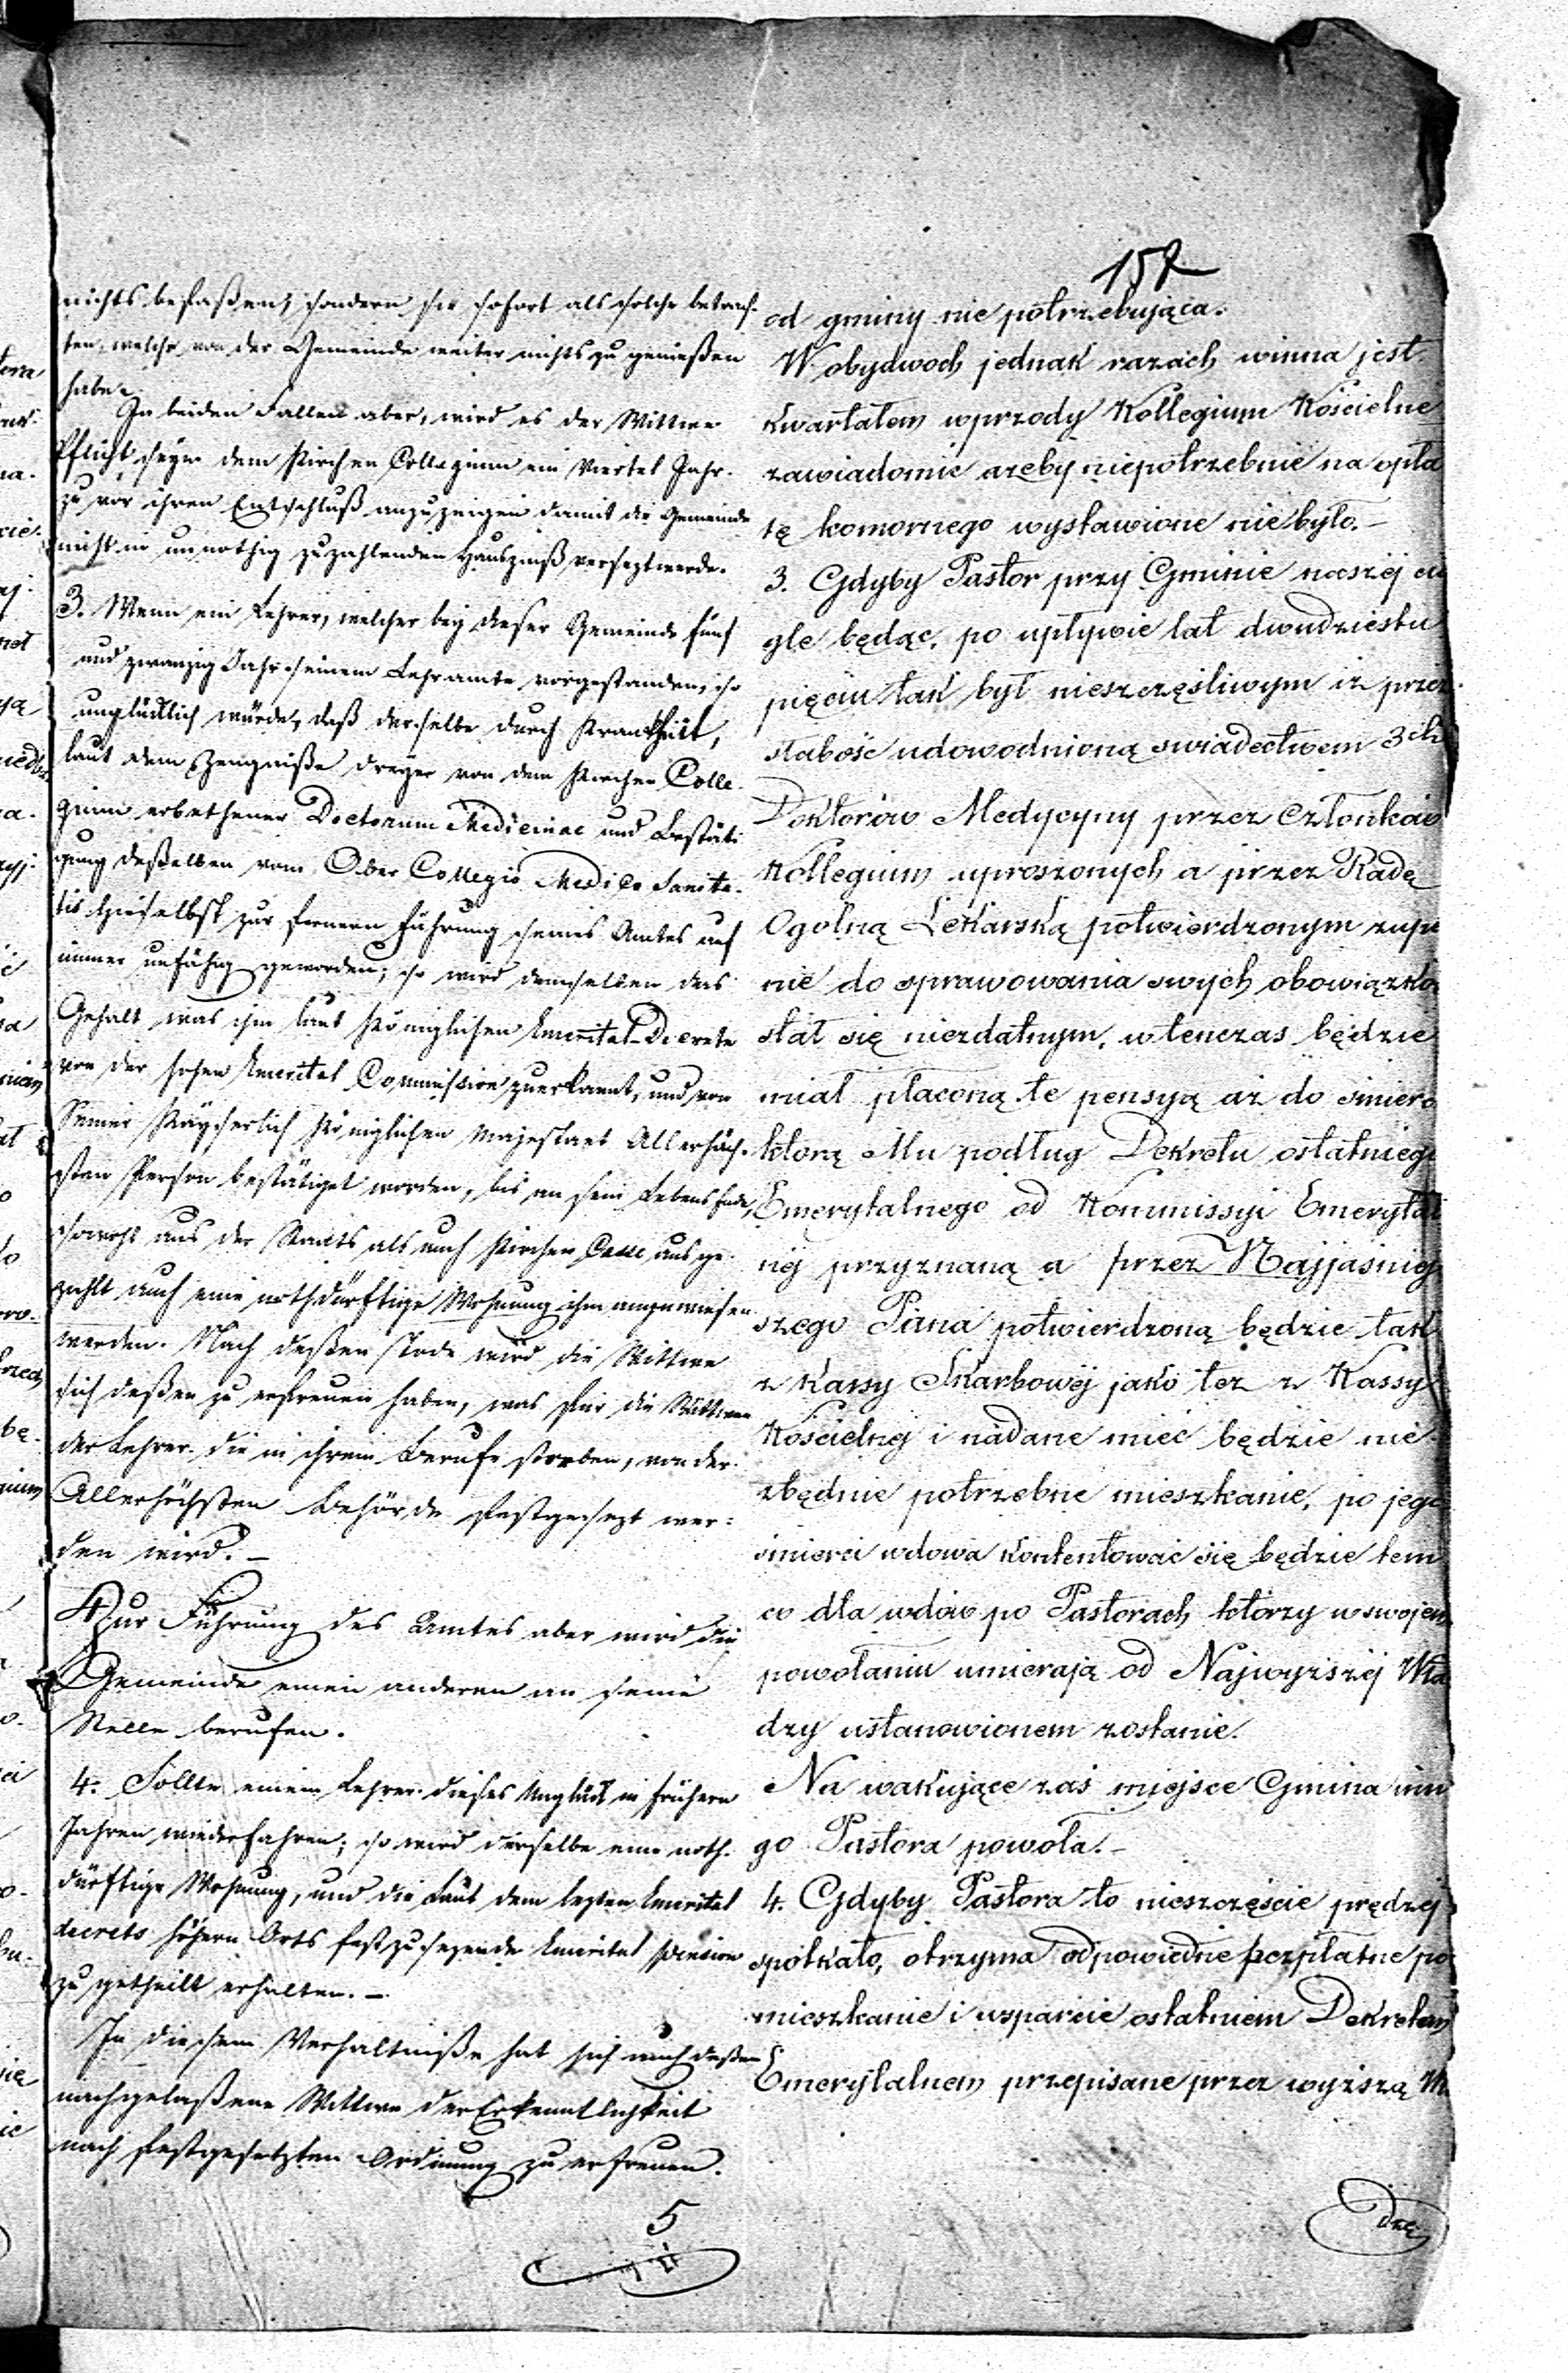 157
nichts befaßen, sondern sie sofort als solche betrach-
ten, welche von der Gemeinde weiter nichts zu genießen
habe.
In beiden Fallen aber, wird es der Wittwe
Pflicht seyn dem Kirchen Collegium ein Viertel Jahr
zu vor ihren Entschluß anzuzeigen damit die Gemeinde
nicht in unnothig zuzahlenden Hauszinß versezt werde.
3. Wenn ein Lehrer, welcher bey dieser Gemeinde fünf
und zwanzig Jahr seinem Lehramte vorgestanden, so
unglücklich würde, daß derselbe durch Krankheit,
laut dem Zeugniße dreyer von dem Kirchen Colle-
gium erbethener Doctorum Medicinae und Bestäti-
gung deßelben vom Ober Collegio Medico Sanita-
tis hieselbst zur fernern Führung seines Amtes auf
immer unfähig geworden; so wird demselben das
Gehalt was ihm laut Königlichen Emerital-Decrete
von der hohen Emerital Commission zuerkannt, und von
Seiner Kayserlich Königlichen Majestaet Allerhöch-
sten Person bestätiget worden, bis an sein Lebens Ende,
sowohl aus der Staats als auch Kirchen Casse ausge-
zahlt auch eine nothdürftige Wohnung ihm angewiesen
werden. Nach deßen Tode wird die Wittwe
sich deßen zu erfreuen haben, was für die Wittwen
der Lehrer die in ihrem Berufe starben, von der
Allerhöchsten Behörde festgesezt wer-
den wird. –
Zur Führung des Amtes aber wird die
Gemeinde einen anderen an seine
Stelle berufen.
4. Sollte einem Lehrer dieses Unglück in frühern
Jahren wiederfahren; so wird derselbe eine noth-
dürftige Wohnung, und die Laut dem lezten Emerital
decrets höhern Orts fest zu sezende Emerital Pension
zu getheilt erhalten. –
In diesem Verhaltniße hat sich auch deßen
nachgelaßene Wittwe der Erkenntlichkeit
nach festgesetzten Ordnung zu erfreuen.
5
od gminy nie potrzebująca.
W obydwoch jednak razach winna jest
kwartałem wprzody Kollegium Kościelne
zawiadomić ażeby niepotrzebnie na opła
tę komornego wystawione nie było. –
3. Gdyby Pastor przy Gminie naszéj cią
gle będąc, po upływie lat dwudziestu
pięciu tak był nieszczęśliwym iż przez
słabość udowodnioną swiadectwem 3ch
Doktorów Medycyny przez Członków
Kollegium uproszonych a przez Radę
Ogolną Lekarską potwierdzonym zupeł
nie do sprawowania swych obowiązków
stał się niezdatnym, wtenczas będzie
miał płaconą te pensyą aż do smierci
ktorą Mu podług Dekretu ostatniego
Emerytalnego od Kommissyi Emerytal
néj przyznaną a przez Najjaśniej
szego Pana potwierdzoną będzie tak
z Kassy Skarbowéj jako też z Kassy
Kościelnéj i nadane mieć będzie nie-
zbędnie potrzebne mieszkanie, po jego
smierci wdowa kontentować się będzie tem
co dla wdów po Pastorach którzy w swojem
powołaniu umierają od Najwyższéj Wła
dzy ustanowionem zostanie.
Na wakujące zaś miejsce Gmina inne
go Pastora powoła. –
4. Gdyby Pastora to nieszczęście prędzéj
spotkało, otrzyma odpowiednie bezpłatne po
mieszkanie i wsparcie ostatniem Dekretem
Emerytalnem przepisane przez wyższą Wła
dzę